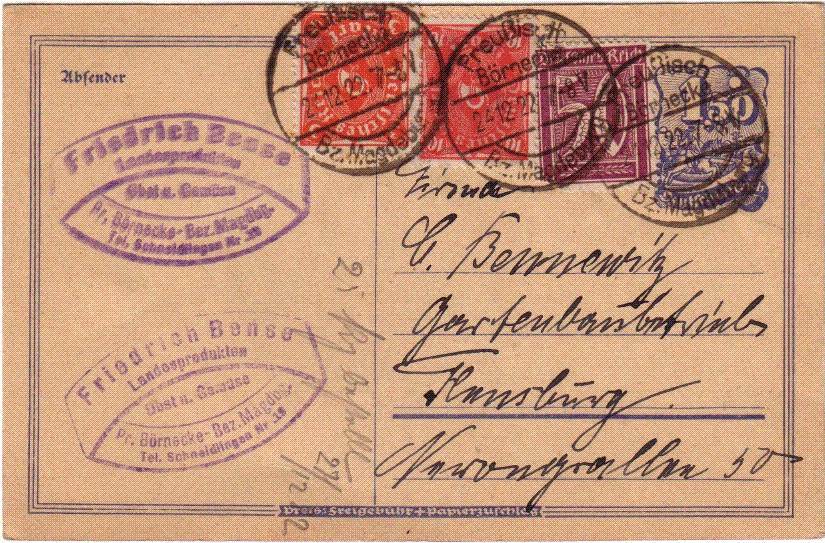 Absender
Friedrich Bense
Landesprodukten
Obst u. Gemüse
Pr. Börnecke-Bez. Magdbg.
Tel. Schneidlingen Nr. 18
Friedrich Bense
Landesprodukten
Obst u. Gemüse
Pr. Börnecke-Bez. Magdbg.
Tel. Schneidlingen Nr. 18
Preußisch
Börnecke
24.12.22. 7-8V
Bz. Magdeburg
Preußisch
Börnecke
24.12.22. 7-8V
Bz. Magdeburg
Preußisch
Börnecke
22. 7-8V
Bz. Magdeburg
10
10
5
1,50
Firma
C. Bennewitz
Gartenbaubetrieb
Flensburg
50
27/12 22
Preis: Freigebühr + Papierzuschlag